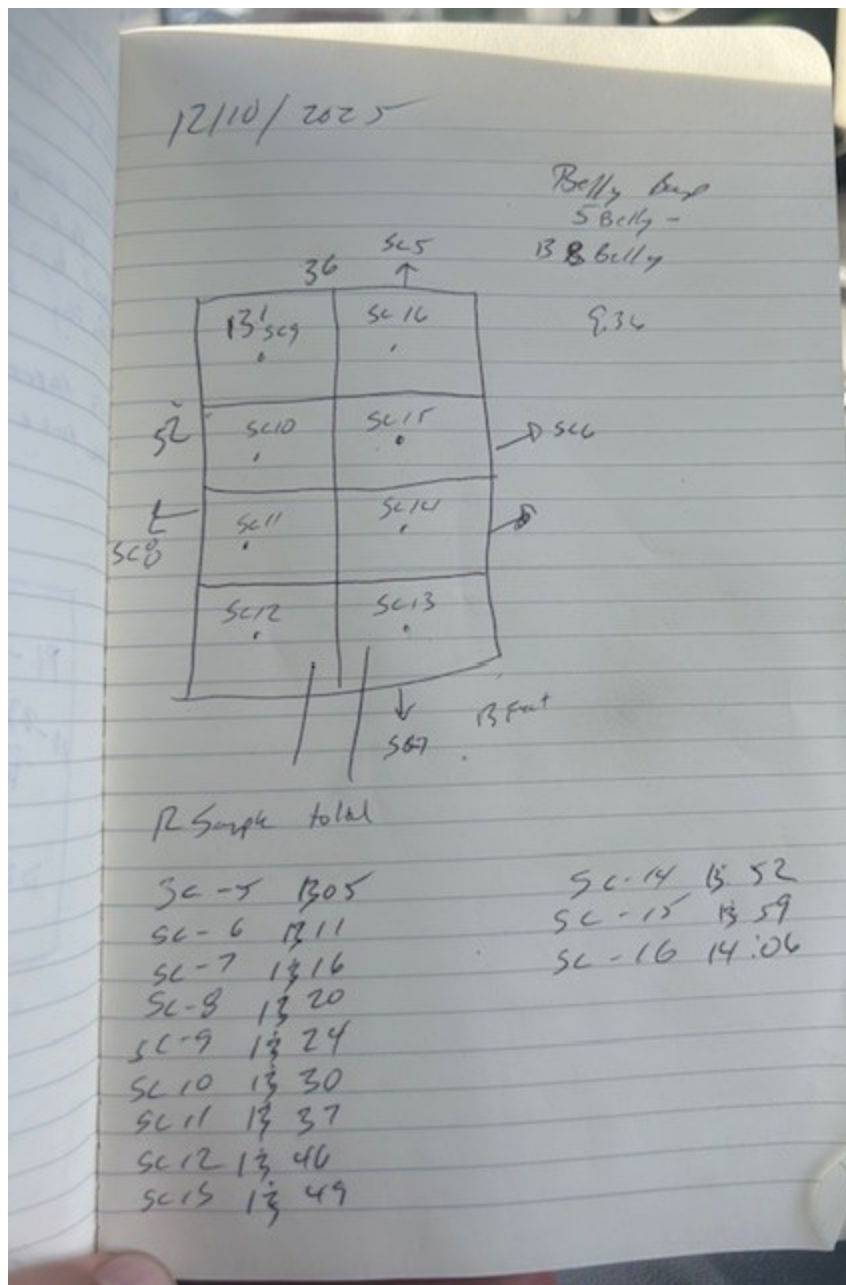 12/10/2025
Belly
5 Belly -
13 8 Belly
SC5
36
13' SC9
SC16
9.36
52
SC10
SC15
SC6
SC11
SC14
SC8
SC12
SC13
SC7
12 Sample total
SC-5 1305
SC-6 1311
SC-7 13:16
SC-8 13:20
SC-9 13:24
SC10 13:30
SC11 13:37
SC12 13:46
SC13 13:49
SC-14 13:52
SC-15 13:59
SC-16 14:06